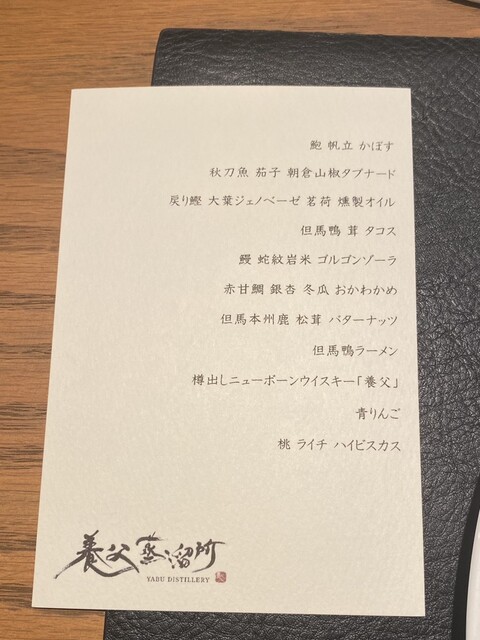 鮑 帆立 かぼす
秋刀魚 茄子 朝倉山椒タプナード
戻り鰹 大葉ジェノベーゼ 茗荷 燻製オイル
但馬鴨 茸 タコス
鰻 蛇紋岩米 ゴルゴンゾーラ
赤甘鯛 銀杏 冬瓜 おかわかめ
但馬本州鹿 松茸 バターナッツ
但馬鴨ラーメン
樽出しニューボーンウイスキー「養父」
青りんご
桃 ライチ ハイビスカス
養父蒸溜所
YABU DISTILLERY